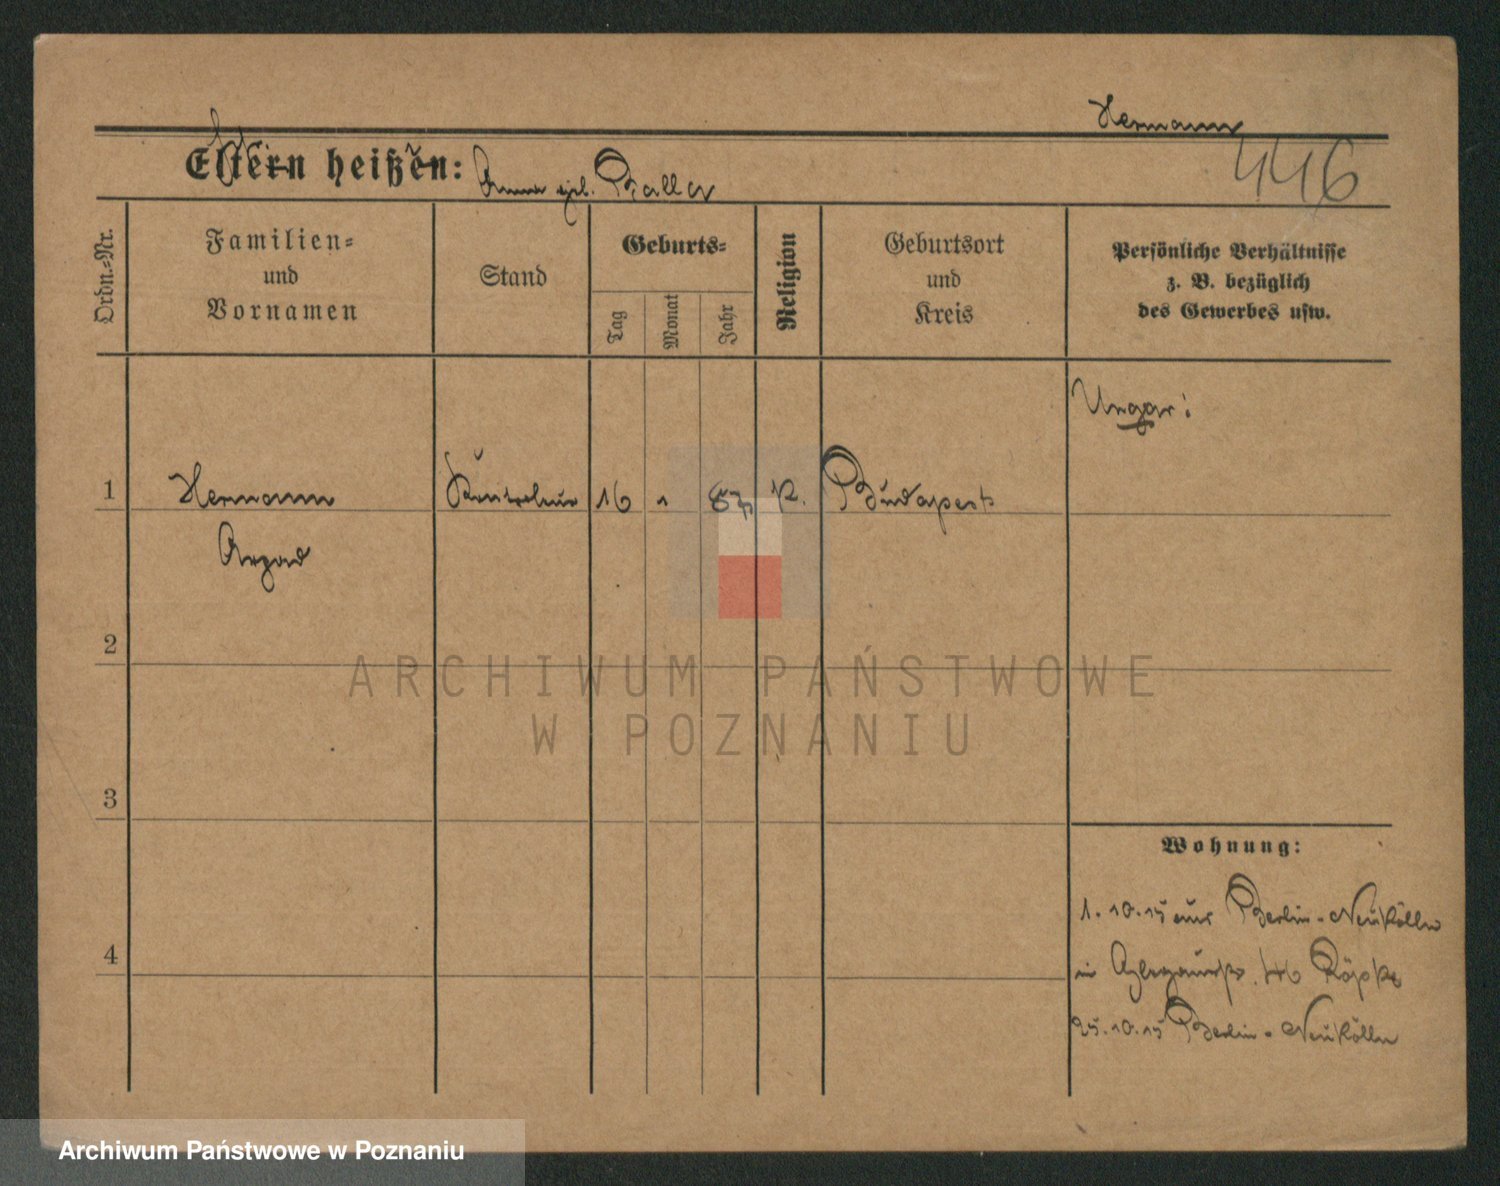 Hermann
446
Eltern heißen: Anna geb. Balla
Ordn.=Nr.
Familien=
und
Vornamen
Stand
Geburts=
Tag
Monat
Jahr
Religion
Geburtsort
und
Kreis
Persönliche Verhältnisse
z. B. bezüglich
des Gewerbes usw.
Ungar:
1 Hermann 16 1 R. Budapest
Arpad
2
3
4
Wohnung:
1.10.15 aus Berlin-Neukölln
in 46 Köpke
25.10.15 Berlin-Neukölln
ARCHIWUM PAŃSTWOWE
W POZNANIU
Archiwum Państwowe w Poznaniu